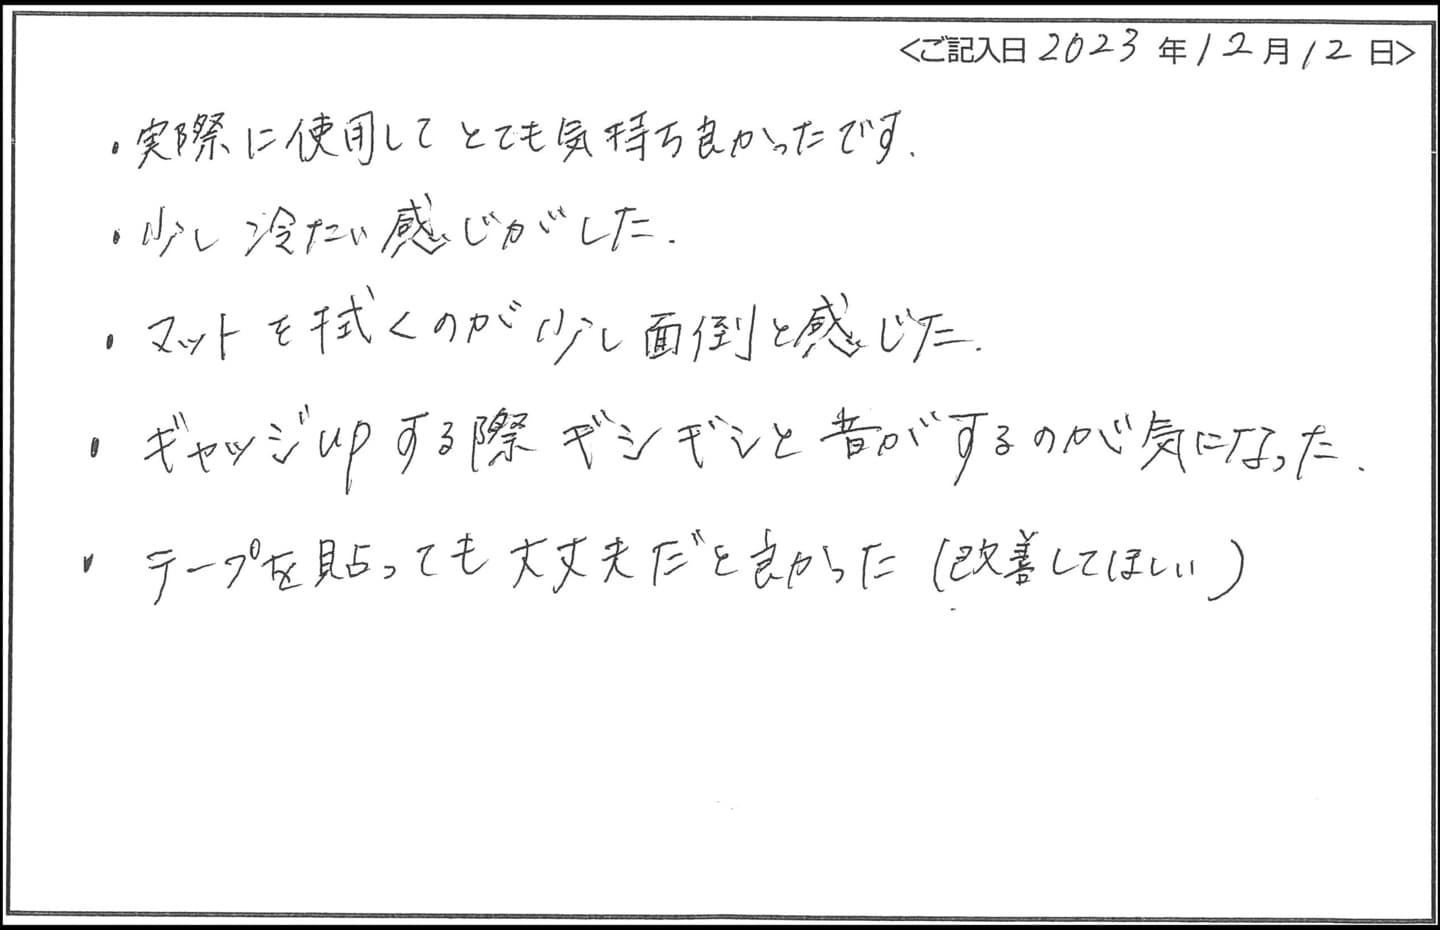 <ご記入日 2023 年 12 月 12 日>
・実際に使用してとても気持ち良かったです.
・少し冷たい感じがした.
・マットを拭くのが少し面倒と感じた.
・ギャッジupする際ギシギシと音がするのが気になった.
・テープを貼っても大丈夫だと良かった(改善してほしい)